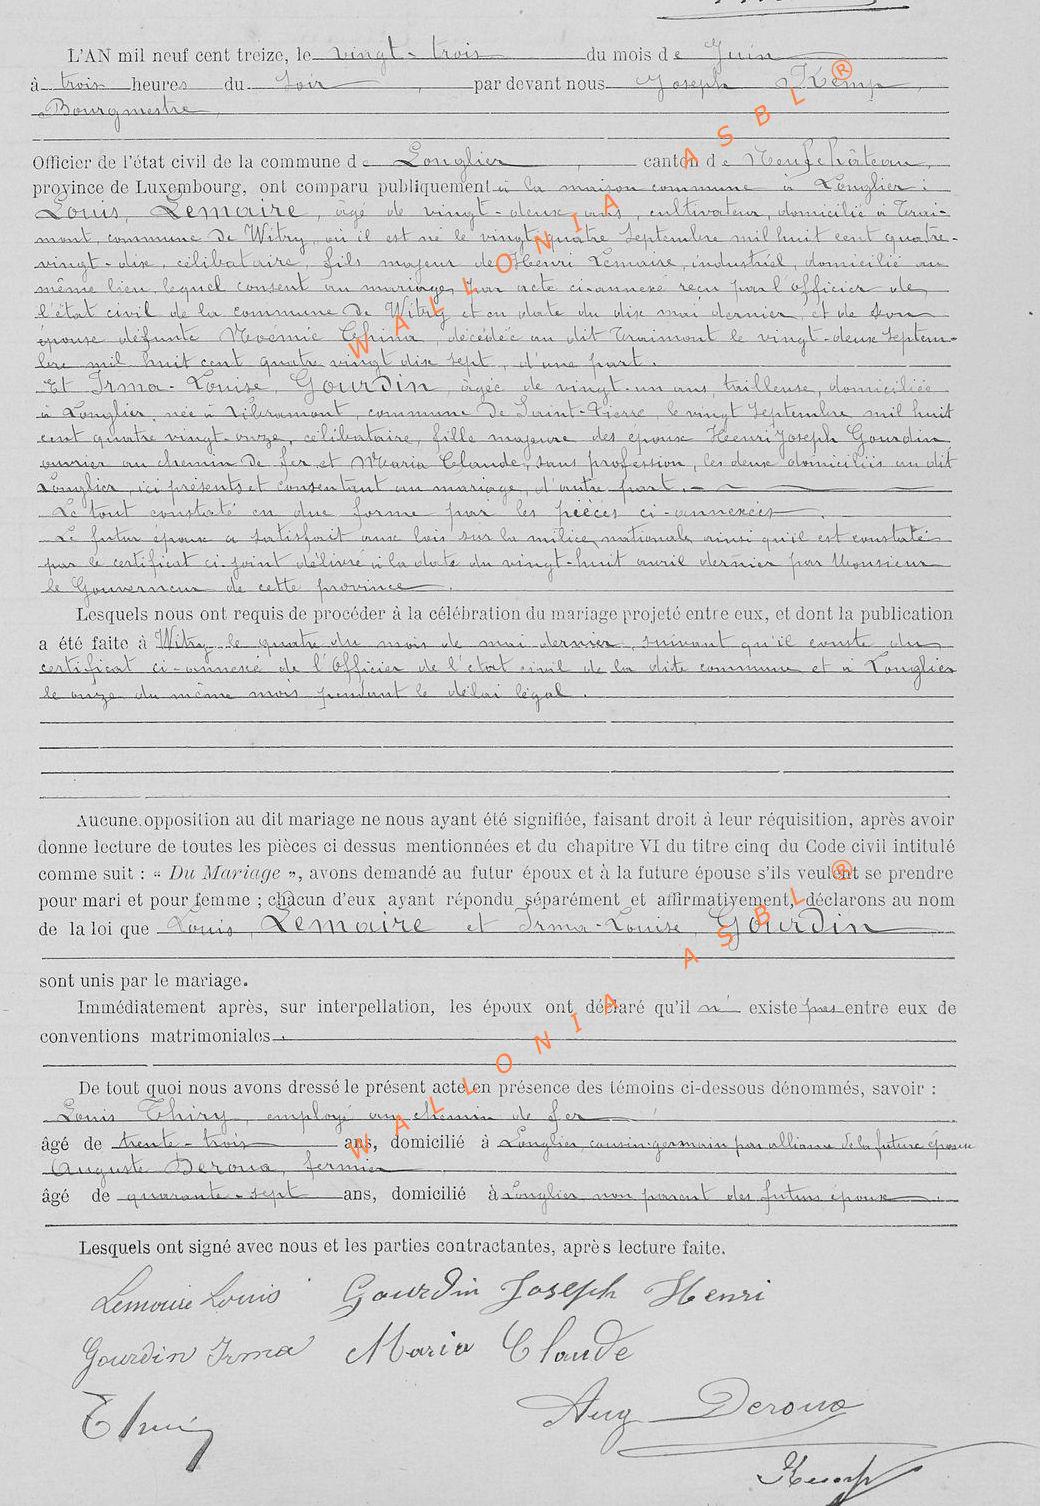 L'AN mil neuf cent treize, le vingt-trois du mois de Juin
à trois heures du soir par devant nous Joseph Kemp,
Bourgmestre,
Officier de l'état civil de la commune de Longlier, canton de Neufchâteau,
province de Luxembourg, ont comparu publiquement à la maison commune à Longlier :
Louis, Lemaire, âgé de vingt-deux ans, cultivateur, domicilié à Trai-
mont, commune de Witry, où il est né le vingt quatre Septembre mil huit cent quatre-
vingt-dix, célibataire, fils majeur de Henri Lemaire, industriel, domicilié au
même lieu, lequel consent au mariage, par acte ci-annexé reçu par l'officier de
l'état civil de la commune de Witry et en date du dix mai dernier, et de son
épouse défunte Noémie Thiry, décédée au dit Traimont le vingt-deux Septem-
bre mil huit cent quatre vingt dix sept, d'une part.
Et Irma-Louise, Gourdin, âgée de vingt-un ans, tailleuse, domiciliée
à Longlier, née à Libramont, commune de Saint-Pierre, le vingt Septembre mil huit
cent quatre vingt-onze, célibataire, fille majeure des époux Henri Joseph Gourdin
ouvrier au chemin de fer et Maria Claude, sans profession, les deux domiciliés au dit
Longlier, ici présents et consentant au mariage, d'autre part.
Le tout constaté en due forme par les pièces ci-annexées.
Le futur époux a satisfait aux lois sur la milice nationale ainsi qu'il est constaté
par le certificat ci-joint délivré à la date du vingt-huit avril dernier par Monsieur
le Gouverneur de cette province.
Lesquels nous ont requis de procéder à la célébration du mariage projeté entre eux, et dont la publication
a été faite à Witry le quatre du mois de mai dernier, suivant qu'il conste du
certificat ci-annexé de l'Officier de l'état civil de la dite commune et à Longlier
le onze du même mois pendant le délai légal.
Aucune opposition au dit mariage ne nous ayant été signifiée, faisant droit à leur réquisition, après avoir
donné lecture de toutes les pièces ci dessus mentionnées et du chapitre VI du titre cinq du Code civil intitulé
comme suit : « Du Mariage », avons demandé au futur époux et à la future épouse s'ils veulent se prendre
pour mari et pour femme ; chacun d'eux ayant répondu séparément et affirmativement, déclarons au nom
de la loi que Louis, Lemaire et Irma-Louise, Gourdin
sont unis par le mariage.
Immédiatement après, sur interpellation, les époux ont déclaré qu'il n' existe pas entre eux de
conventions matrimoniales.
De tout quoi nous avons dressé le présent acte en présence des témoins ci-dessous dénommés, savoir :
Louis Thiry, employé au chemin de fer
âgé de trente-trois ans, domicilié à Longlier, cousin germain par alliance de la future épouse
Auguste Deroua, fermier
âgé de quarante-sept ans, domicilié à Longlier non parent des futurs époux.
Lesquels ont signé avec nous et les parties contractantes, après lecture faite.
Lemaire Louis Gourdin Joseph Henri
Gourdin Irma Maria Claude
Thiry
Aug Deroua
Kemp
WALLONIA ASBL ®
WALLONIA ASBL ®